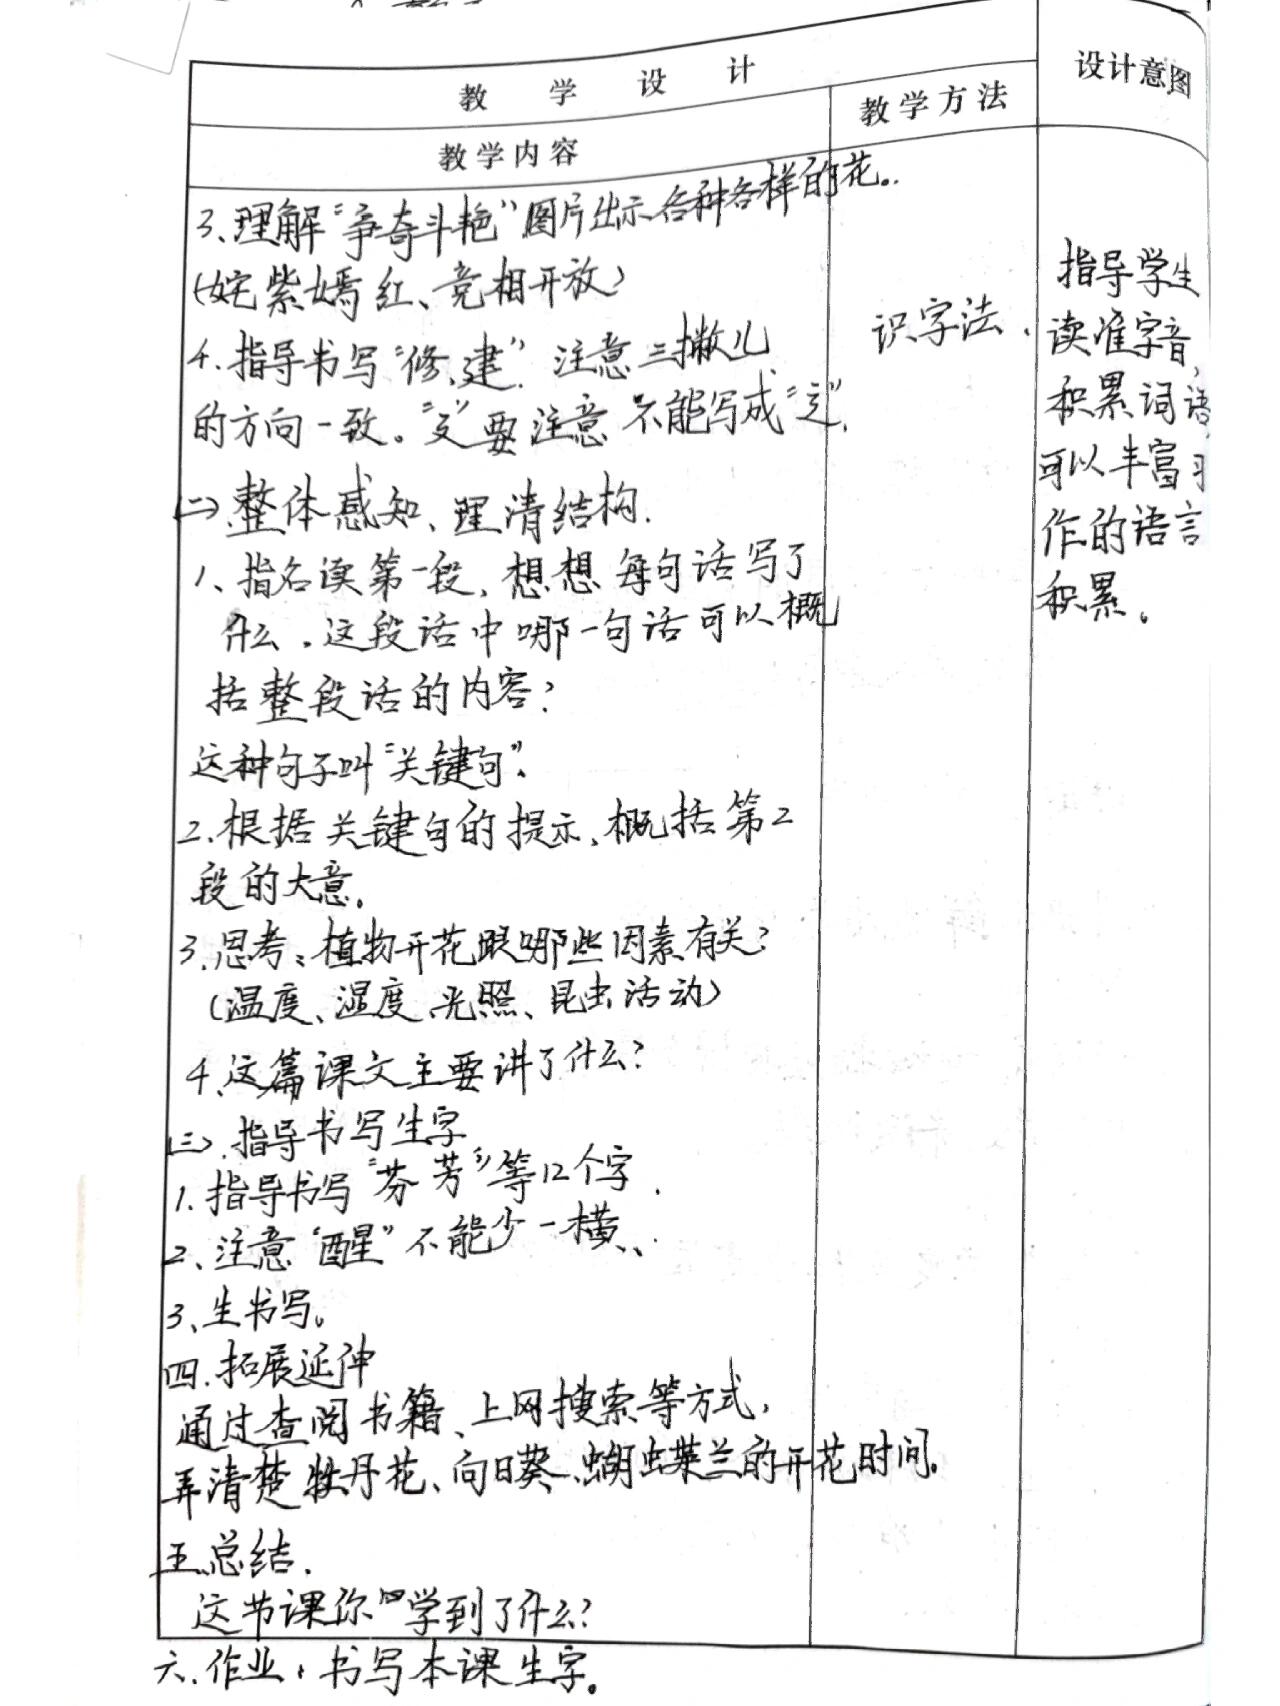 教 学 设 计
设计意图
教学内容
教学方法
3、理解“争奇斗艳”图片出示各种各样的花。
(姹紫嫣红、竞相开放)
4.指导书写“修、建”. 注意三撇儿
的方向一致。“廴”要注意不能写成“辶”.
(二)整体感知、理清结构.
1、指名读第一段,想想每句话写了
什么.这段话中哪一句话可以概
括整段话的内容?
这种句子叫“关键句”.
2.根据关键句的提示,概括第2
段的大意.
3.思考:植物开花跟哪些因素有关?
(温度、湿度、光照、昆虫活动)
4、这篇课文主要讲了什么?
(三).指导书写生字
1.指导书写“芬芳”等12个字.
2、注意“醒”不能少一横、
3、生书写。
四.拓展延伸
通过查阅书籍、上网搜索等方式,
弄清楚牡丹花、向日葵、蝴蝶兰的开花时间.
五.总结.
这节课你学到了什么?
六.作业:书写本课生字。
识字法.
指导学生
读准字音,
积累词语,
可以丰富习
作的语言
积累。